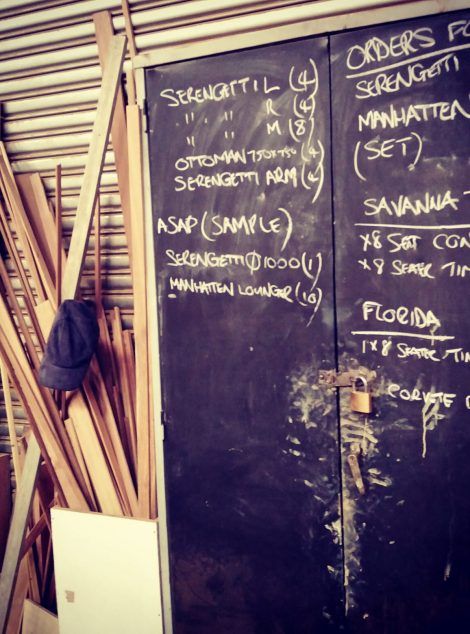 SERENGETTI L (4)
" " R (4)
" " M (8)
OTTOMAN 750x750 (4
SERENGETTI ARM (4)
ASAP (SAMPLE)
SERENGETTI Ø1000 (1)
MANHATTEN LOUNGER (10)
ORDERS FO
SERENGETTI
MANHATTEN
(SET)
SAVANNA
x8 SEAT CON
x8 SEATER TIM
FLORIDA
1x8 SEATER TIM